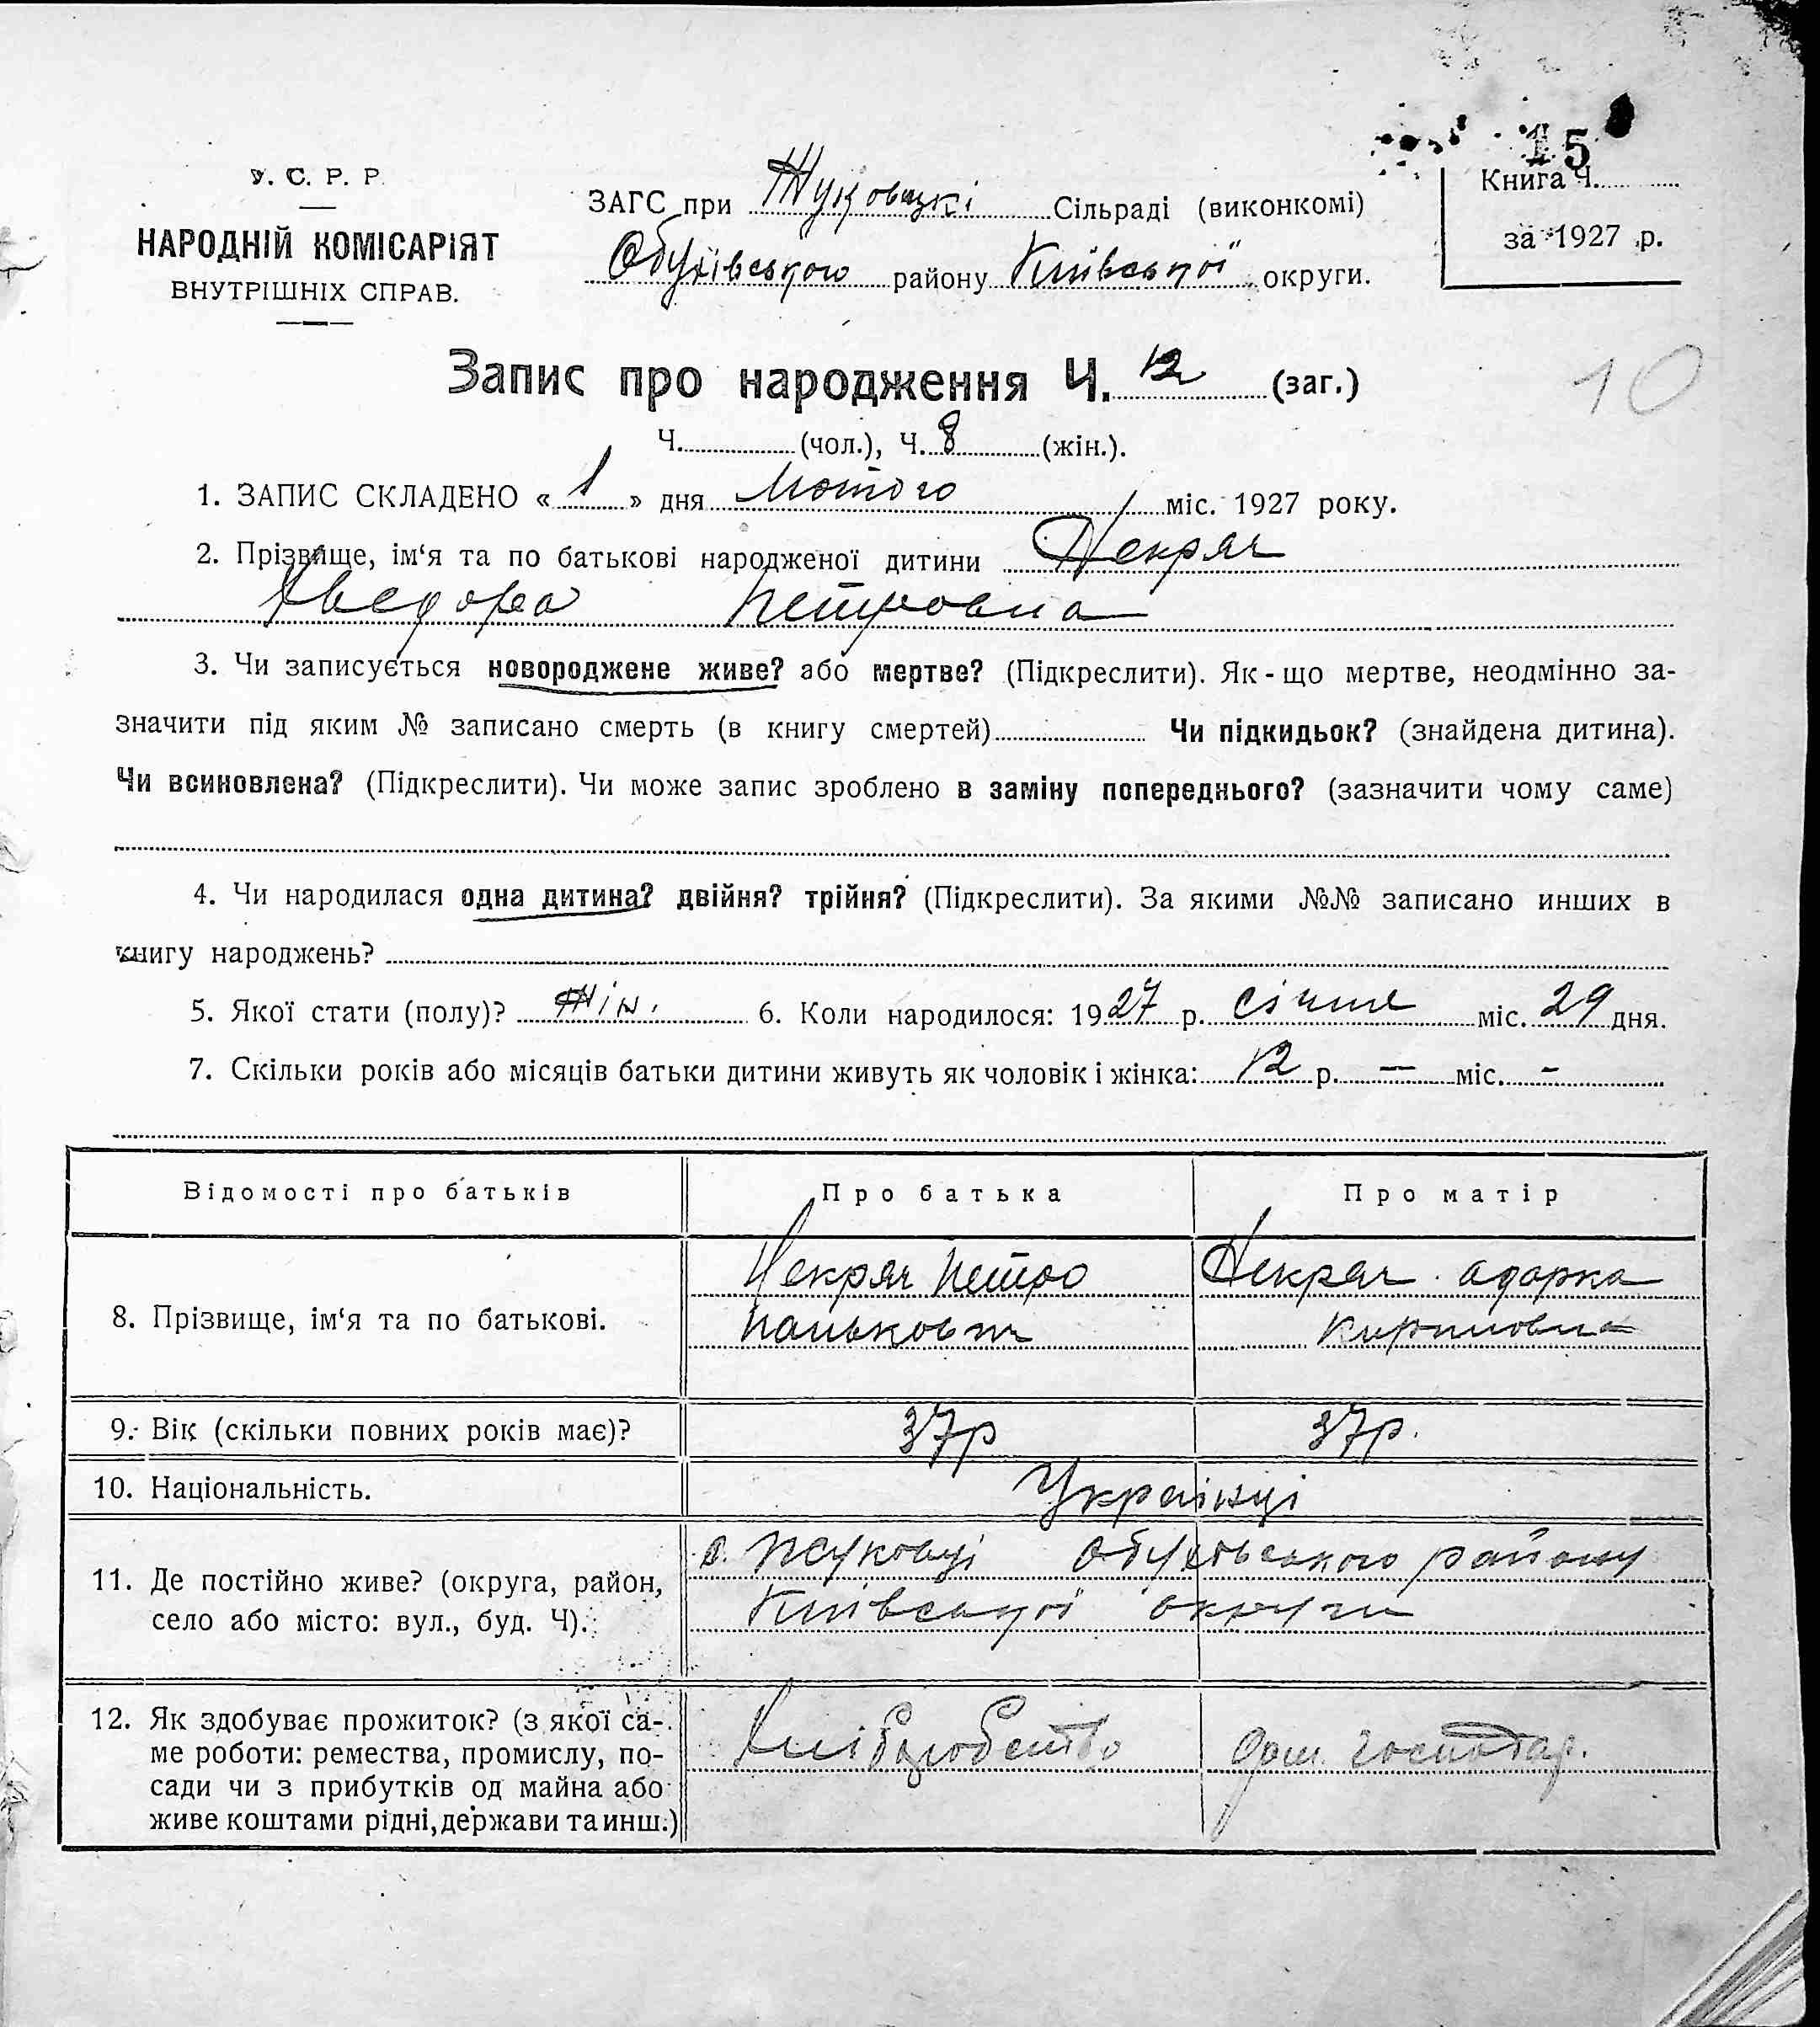 15
У. С. Р. Р.
НАРОДНІЙ КОМІСАРІЯТ
ВНУТРІШНІХ СПРАВ.
ЗАГС при Жуковецкі Сільраді (виконкомі)
Обухівського району Київської округи.
Книга Ч.
за 1927 р.
Запис про народження Ч. 12 (заг.)
10
Ч. (чол.), Ч. 8 (жін.).
1. ЗАПИС СКЛАДЕНО « 1 » дня Лютого міс. 1927 року.
2. Прізвище, ім‘я та по батькові народженої дитини Некряч
Хведора Петровна
3. Чи записується новороджене живе? або мертве? (Підкреслити). Як-що мертве, неодмінно за-
значити під яким № записано смерть (в книгу смертей) Чи підкидьок? (знайдена дитина).
Чи всиновлена? (Підкреслити). Чи може запис зроблено в заміну попереднього? (зазначити чому саме)
4. Чи народилася одна дитина? двійня? трійня? (Підкреслити). За якими №№ записано инших в
книгу народжень?
5. Якої стати (полу)? жін. 6. Коли народилося: 1927 р. січня міс. 29 дня.
7. Скільки років або місяців батьки дитини живуть як чоловік і жінка: 12 р. — міс. -
Відомості про батьків Про батька Про матір
8. Прізвище, ім‘я та по батькові. Некряч Петро Панькович Некряч Адарка Кириловна
9. Вік (скільки повних років має)? 37р 37р.
10. Національність. Українці
11. Де постійно живе? (округа, район, с. Жуковці Обухівського району
село або місто: вул., буд. Ч). Київської округи
12. Як здобуває прожиток? (з якої са-
ме роботи: ремества, промислу, по- Хліборобство дом. господар.
сади чи з прибутків од майна або
живе коштами рідні, держави та инш.)